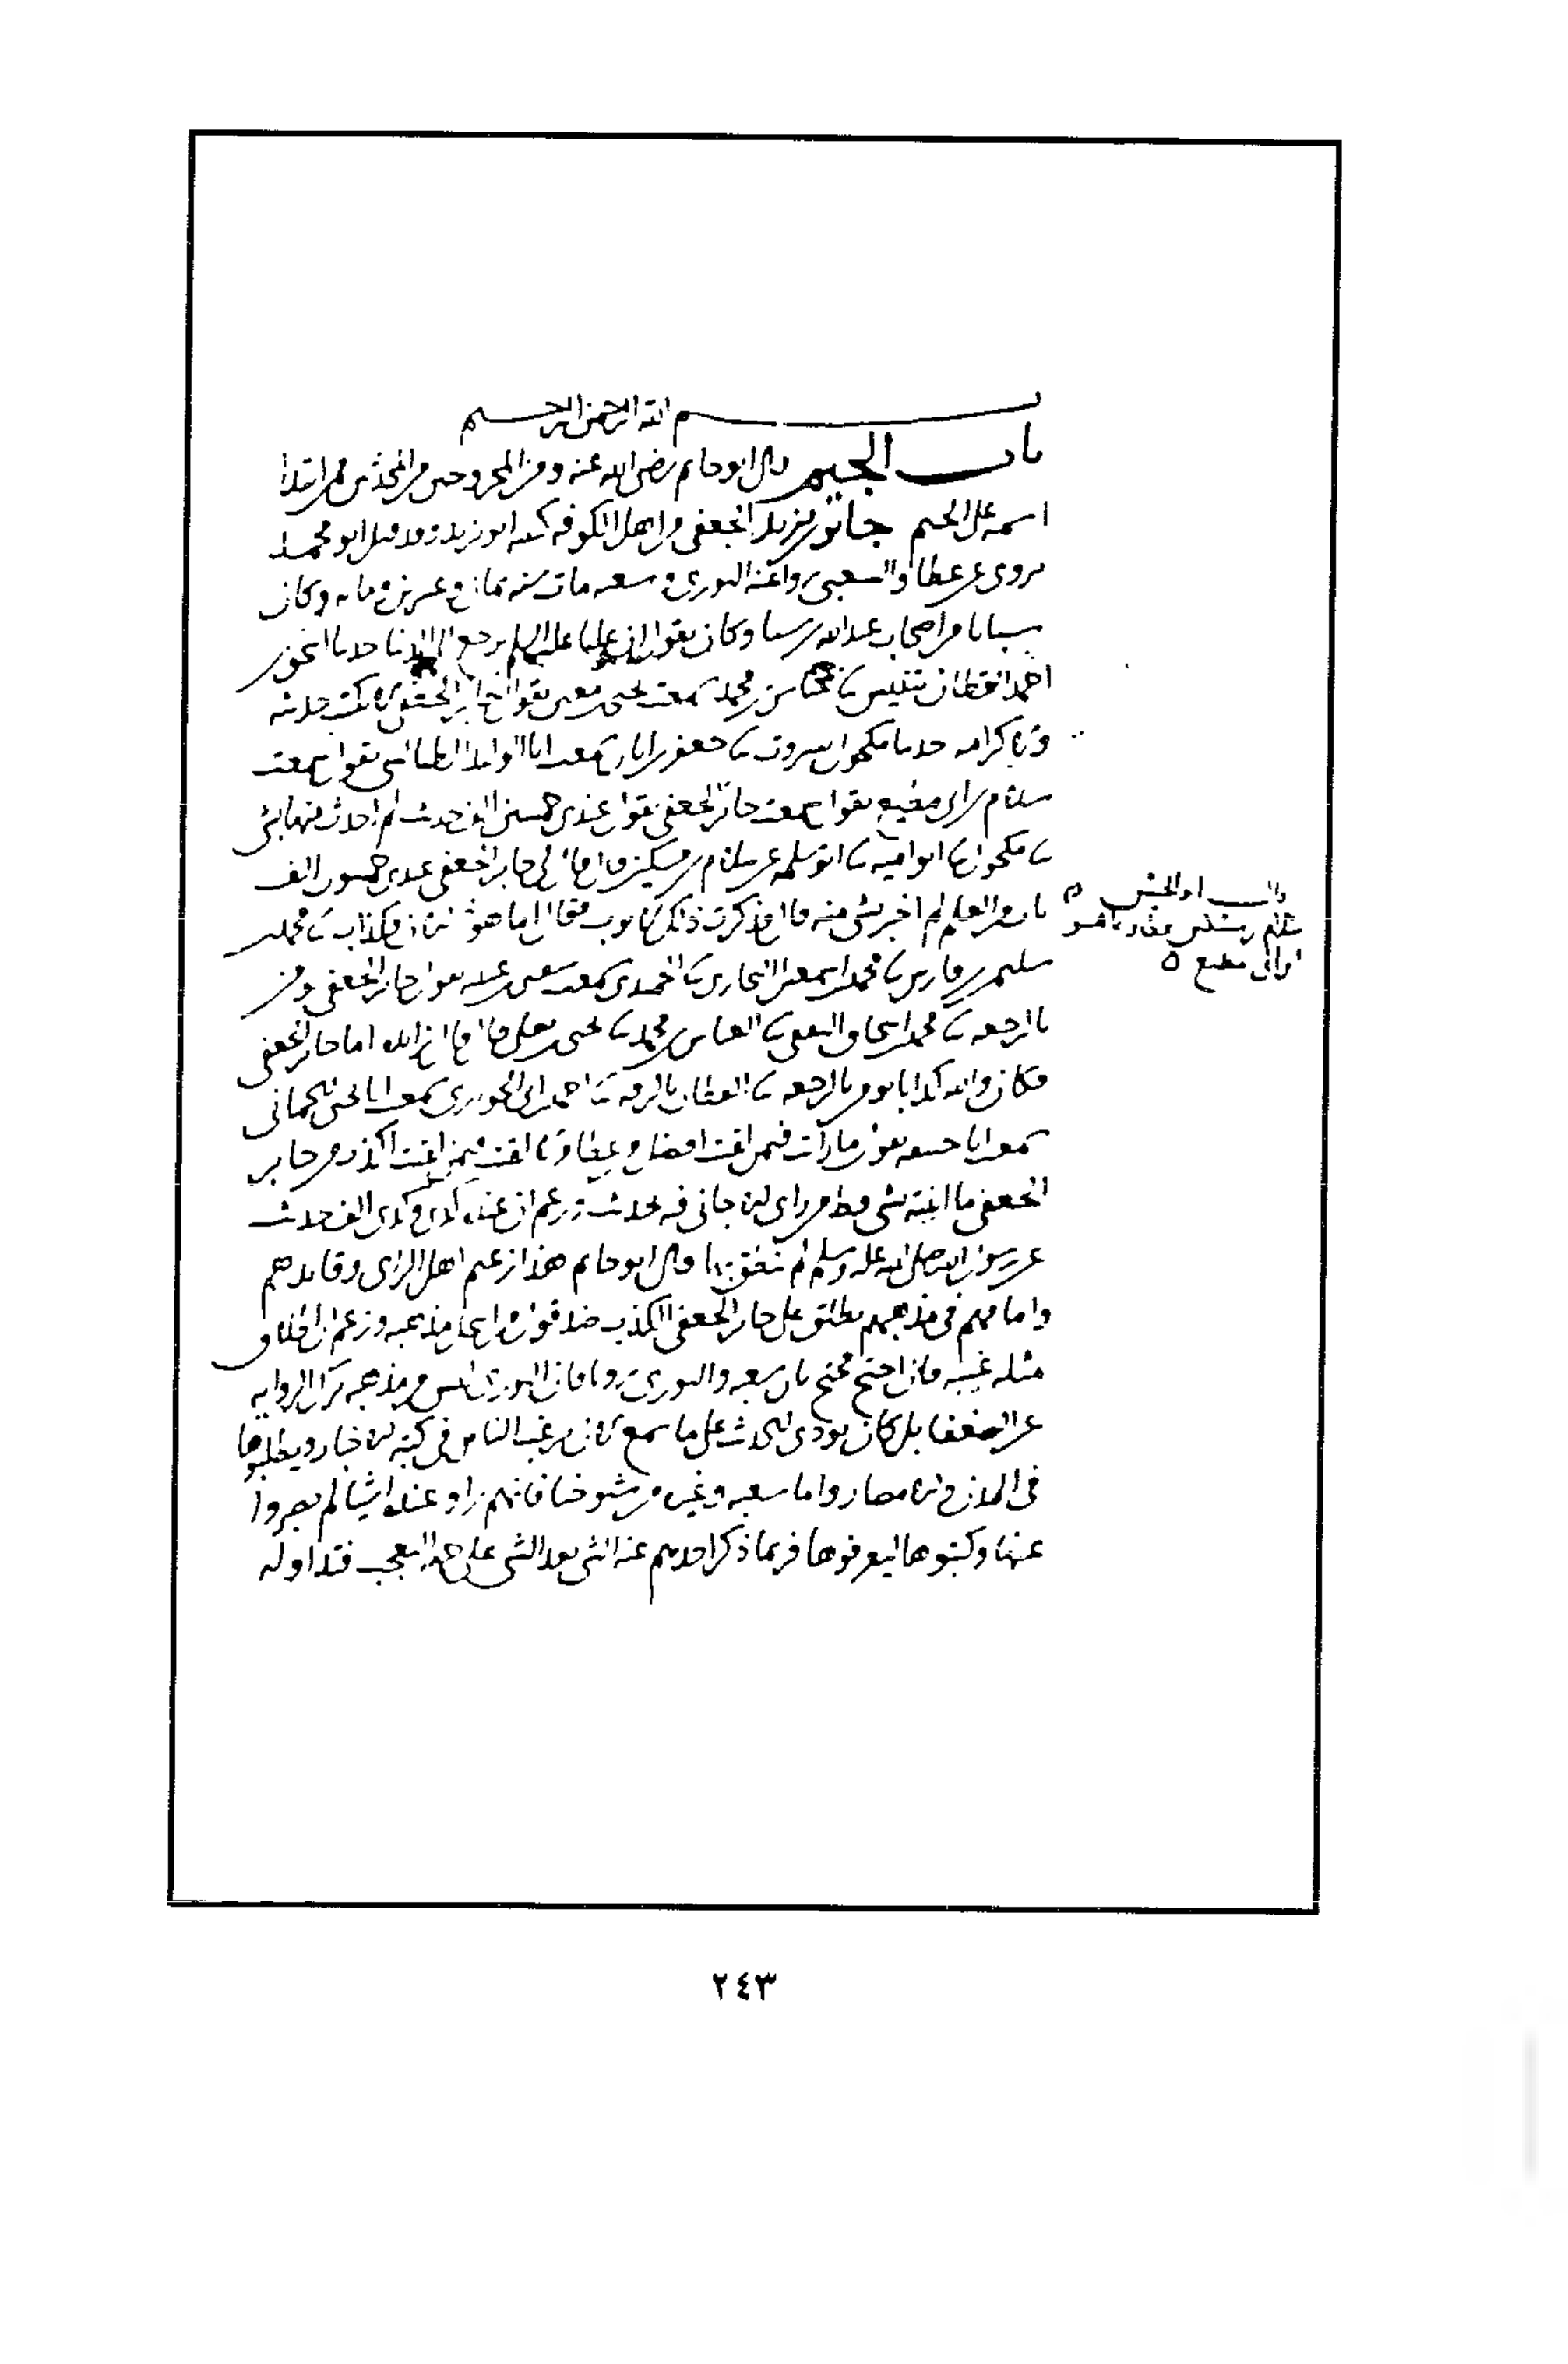 بسم الله الرحمن الرحيم
باب الجيم قال ابو حاتم رضي الله عنه ومن المجروحين من المحدثين ممن ابتدا
اسمه على الجيم جابر بن يزيد الجعفي من اهل الكوفه كنيته ابو يزيد وقد قيل ابو محمد
يروي عن عطا والشعبي روا عنه الثوري وشعبه مات سنه ثمان وعشرين ومايه وكان
سبايا من اصحاب عبد الله بن سبا وكان يقول ان عليا عليه السلم يرجع الى الدنيا حدثنا اسحق بن
احمد القطان بتنيس ثنا عباس بن محمد سمعت يحيى بن معين يقول جابر الجعفي لا يكتب حديثه
ولا كرامه حدثنا مكحول ببيروت ثنا جعفر بن ابان سمعت ابا الوليد الطيالسي يقول سمعت
سلام بن ابي مطيع يقول سمعت جابر الجعفي يقول عندي خمسين الف حديث لم احدث منها بشي
ثنا مكحول ثنا ابو اميه ثنا ابو سلمه عن سلام بن مسكين قال قال لي جابر الجعفي عندي خمسون الف
باب من العلم لم اخبر بشي منه قال فذكرت ذلك لايوب فقال اما هو الان فكذاب ثنا محمد بن
سليم بن فارس ثنا محمد بن اسمعيل البخاري ثنا الحميدي سمعت سفين بن عيينه يقول جابر الجعفي يومن
بالرجعه ثنا محمد بن اسحاق الثقفي ثنا العباس بن محمد ثنا يحيى بن يعلى قال قال زايده اما جابر الجعفي
فكان والله كذابا يومن بالرجعه ثنا القطان بالرقه ثنا احمد بن ابي الحواري سمعت ابا يحيى الحماني
سمعت ابا حنيفه يقول ما رايت فيمن لقيت افضل من عطا ولا لقيت فيمن لقيت اكذب من جابر
الجعفي ما اتيته بشي قط من راي الا جاني فيه بحديث وزعم ان عنده كذى وكذى الف حديث
عن رسول الله صلى الله عليه وسلم لم ينطق بها قال ابو حاتم هذا زعيم اهل الراي وقايدهم
وامامهم في مذهبهم يطلق على جابر الجعفي الكذب ضد قول من انتحل مذهبه وزعم ان اطلاق
مثله غيبه فان احتج محتج بان شعبه والثوري رويا فان الثوري ليس من مذهبه ترك الروايه
عن الضعفا بل كان يودي الحديث على ما سمع لان يرغب الناس في كتبة الاخبار ويطلبوها
في المدن والامصار واما شعبه وغيره من شيوخنا فانهم راو عنده اشيا لم يصبروا
عنها وكتبوها ليعرفوها فربما ذكر احدهم عنه الشي بعد الشي على جهة التعجب فتداوله
قال ابو الحسن ٥
سلام بن مسكين هذا وانما هو
ابن ابي مطيع ٥
٢٤٣